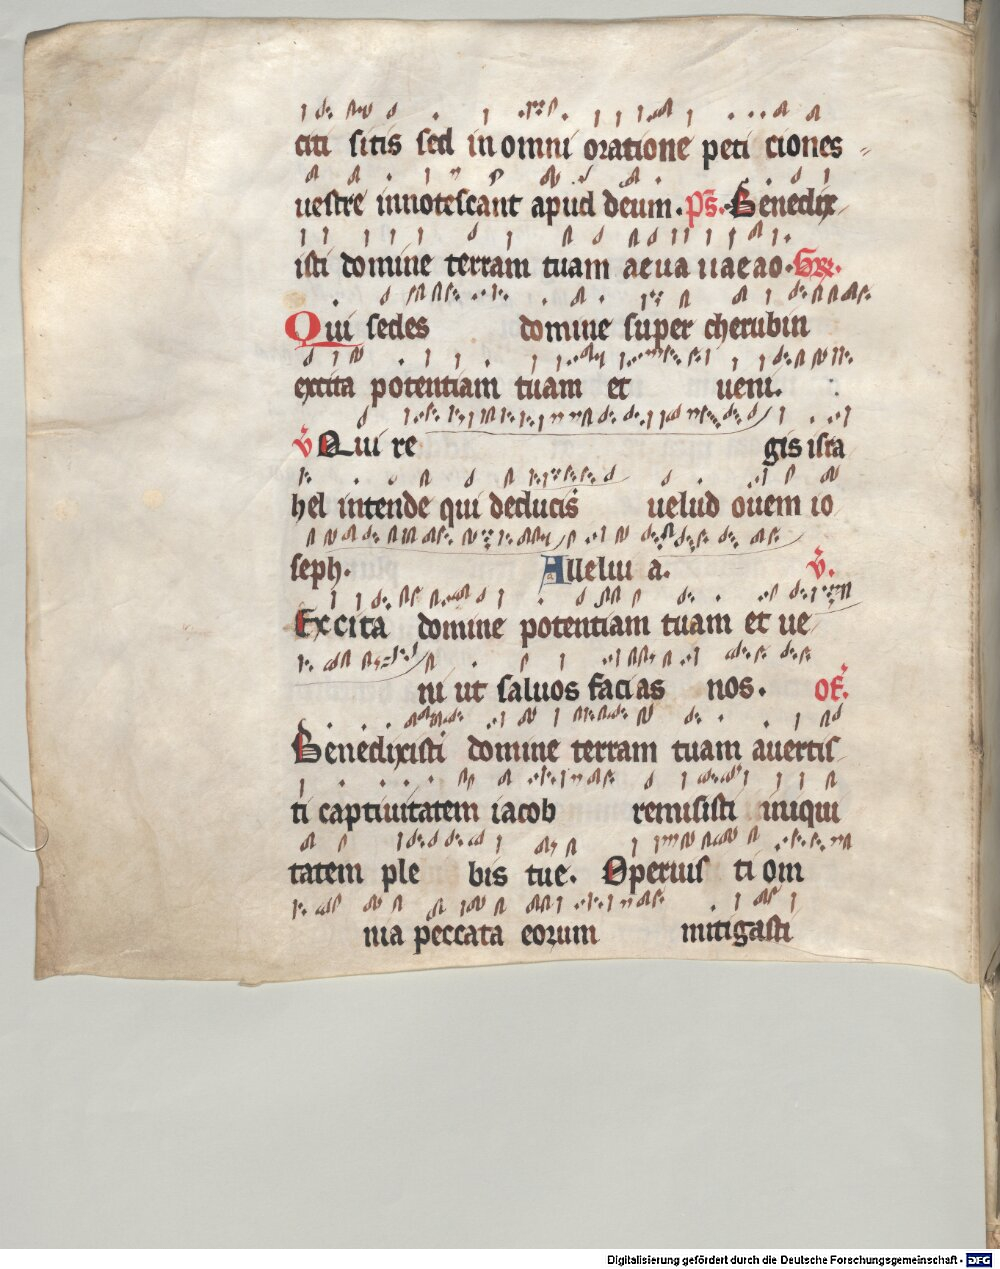 citi sitis sed in omni oratione peti ciones
uestre innotescant apud deum. ps. Benedix
isti domine terram tuam aeua uaeao. Gr.
Qui sedes domine super cherubin
excita potentiam tuam et ueni.
v Qui re gis isra
hel intende qui deducis uelud ouem io
seph. Allelui a. v.
Excita domine potentiam tuam et ue
ni ut saluos facias nos. of.
Benedixisti domine terram tuam auertis
ti captiuitatem iacob remisisti iniqui
tatem ple bis tue. Operuis ti om
nia peccata eorum mitigasti
Digitalisierung gefördert durch die Deutsche Forschungsgemeinschaft - DFG